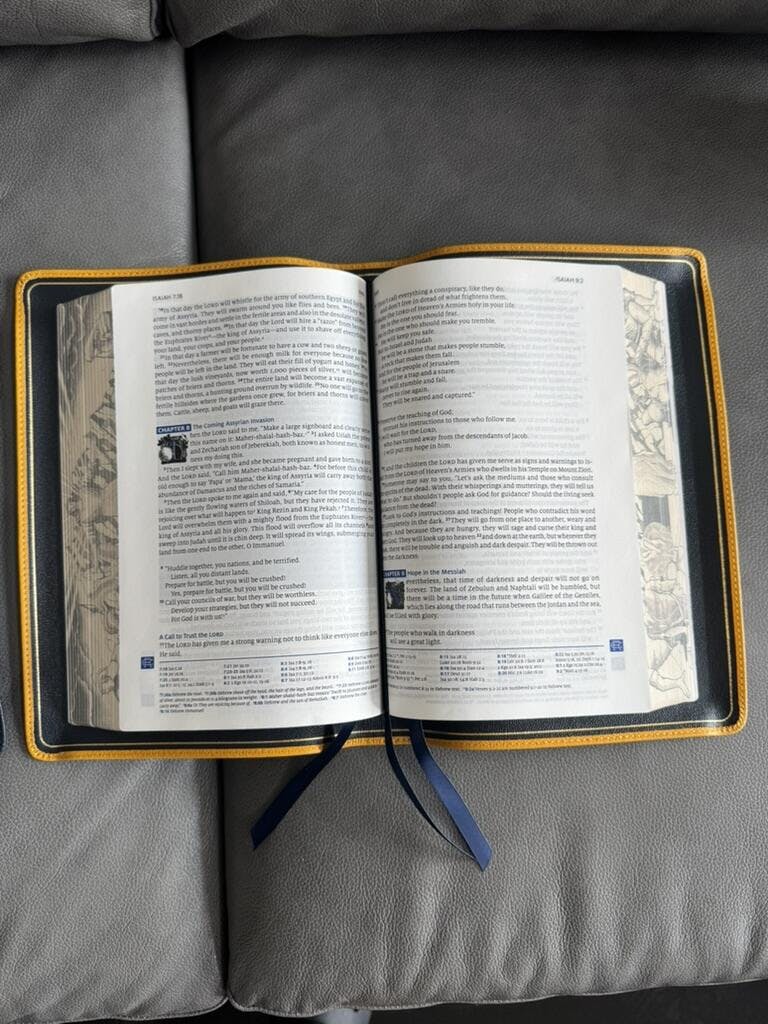 ISAIAH 7:18
¹⁸In that day the LORD will whistle for the army of southern Egypt and for the
army of Assyria. They will swarm around you like flies and bees. ¹⁹They
come in vast hordes and settle in the fertile areas and also in the desolate
caves, and thorny places. ²⁰In that day the Lord will hire a "razor" from beyond
the Euphrates River—the king of Assyria—and use it to shave off everything:
your land, your crops, and your people.
²¹In that day a farmer will be fortunate to have a cow and two sheep or goats
left. ²²Nevertheless, there will be enough milk for everyone because so few
people will be left in the land. They will eat their fill of yogurt and honey.
that day the lush vineyards, now worth 1,000 pieces of silver, will become
patches of briers and thorns. ²⁴The entire land will become a vast expanse of
briers and thorns, a hunting ground overrun by wildlife. ²⁵No one will go to the
fertile hillsides where the gardens once grew, for briers and thorns will cover
them. Cattle, sheep, and goats will graze there.
CHAPTER 8 The Coming Assyrian Invasion
hen the LORD said to me, "Make a large signboard and clearly write
this name on it: Maher-shalal-hash-baz." ²I asked Uriah the priest
and Zechariah son of Jeberekiah, both known as honest men, to
ness my doing this.
³Then I slept with my wife, and she became pregnant and gave birth to a son.
And the LORD said, "Call him Maher-shalal-hash-baz. ⁴For before this child is
old enough to say 'Papa' or 'Mama,' the king of Assyria will carry away both the
abundance of Damascus and the riches of Samaria."
⁵Then the LORD spoke to me again and said, ⁶"My care for the people of Judah
is like the gently flowing waters of Shiloah, but they have rejected it. They are
rejoicing over what will happen to King Rezin and King Pekah. ⁷Therefore, the
Lord will overwhelm them with a mighty flood from the Euphrates River—the
king of Assyria and all his glory. This flood will overflow all its channels and
sweep into Judah until it is chin deep. It will spread its wings, submerging your
land from one end to the other, O Immanuel.
⁹ "Huddle together, you nations, and be terrified.
Listen, all you distant lands.
Prepare for battle, but you will be crushed!
Yes, prepare for battle, but you will be crushed!
¹⁰ Call your councils of war, but they will be worthless.
Develop your strategies, but they will not succeed.
For God is with us!"
A Call to Trust the LORD
¹¹The LORD has given me a strong warning not to think like everyone else does.
He said,
ISAIAH 9:2
call everything a conspiracy, like they do,
don't live in dread of what frightens them.
the LORD of Heaven's Armies holy in your life.
He is the one you should fear.
the one who should make you tremble.
He will keep you safe.
to Israel and Judah
will be a stone that makes people stumble,
a rock that makes them fall.
for the people of Jerusalem
will be a trap and a snare.
will stumble and fall,
never to rise again.
They will be snared and captured."
Preserve the teaching of God;
entrust his instructions to those who follow me.
will wait for the LORD,
who has turned away from the descendants of Jacob.
I will put my hope in him.
and the children the LORD has given me serve as signs and warnings to Is-
from the LORD of Heaven's Armies who dwells in his Temple on Mount Zion.
Someone may say to you, "Let's ask the mediums and those who consult
the spirits of the dead. With their whisperings and mutterings, they will tell us
to do." But shouldn't people ask God for guidance? Should the living seek
guidance from the dead?
Look to God's instructions and teachings! People who contradict his word
completely in the dark. ²¹They will go from one place to another, weary and
hungry. And because they are hungry, they will rage and curse their king and
their God. They will look up to heaven ²²and down at the earth, but wherever they
look, there will be trouble and anguish and dark despair. They will be thrown out
the darkness.
CHAPTER 9 Hope in the Messiah
evertheless, that time of darkness and despair will not go on
forever. The land of Zebulun and Naphtali will be humbled, but
there will be a time in the future when Galilee of the Gentiles,
which lies along the road that runs between the Jordan and the sea,
will be filled with glory.
The people who walk in darkness
will see a great light.